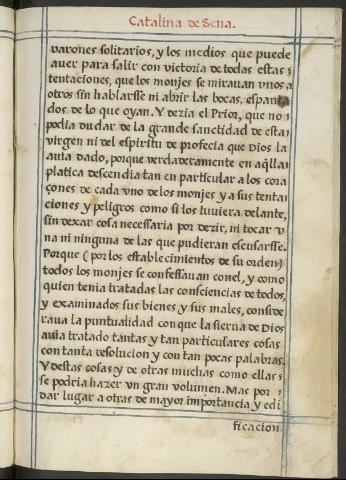 Catalina de Sena.
varones solitarios, y los medios que puede
auer para salir con victoria de todas estas
tentaciones, que los monjes se mirauan vnos a
otros sin hablarsse ni abrir las bocas, espanta
dos, de lo que oyan. Y dezia el Prior, que no
podia dudar de la grande sanctidad de esta
virgen ni del espiritu de profecia que Dios la
auia dado, porque verdaderamente en aq̃lla
platica descendia tan en particular a los cora
çones de cada vno de los monjes y a sus tenta
ciones y peligros como si los tuuiera delante,
sin dexar cosa necessaria por dezir, ni tocar v
na ni ninguna de las que pudieran escusarsse.
Porque (por los establecimientos de su orden)
todos los monjes se confessauan con el, y como
quien tenia tratadas las consciencias de todos,
y examinados sus bienes y sus males, conside
raua la puntualidad con que la sierua de Dios
auia tratado tantas y tan particulares cosas
con tanta resolucion y con tan pocas palabras.
Y destas cosas y de otras muchas como ellas
se podria hazer vn gran volumen. Mas por
dar lugar a otras de mayor importancia y edi
ficacion